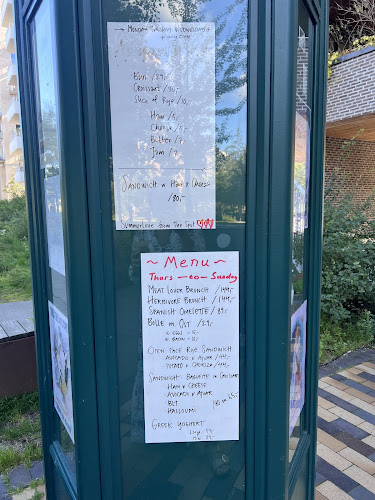 MONDAY TUESDAY WEDNESDAYS
BUN /29,-
CROISSANT /30,-
SLICE of RYE /10,-
HAM /5,-
CHEESE /5,-
BUTTER /7,-
JAM /9,-
SANDWICH w HAM & CHEESE
/80,-
SUMMERLOVE from THE SPOT
~ Menu ~
Thurs —to— Sunday
MEAT LOVER BRUNCH /149,-
HERBIVORE BRUNCH /149,-
SPANISH OMELETTE / 89,-
BOLLE m. OST / 29,-
OPEN FACE RYE SANDWICH
AVOCADO & AJVAR /
POTATO & CHORIZO /
SANDWICH BAGUETTE or
HAM & CHEESE
AVOCADO & AJVAR
BLT
HALLOUMI
GREEK YOGHURT